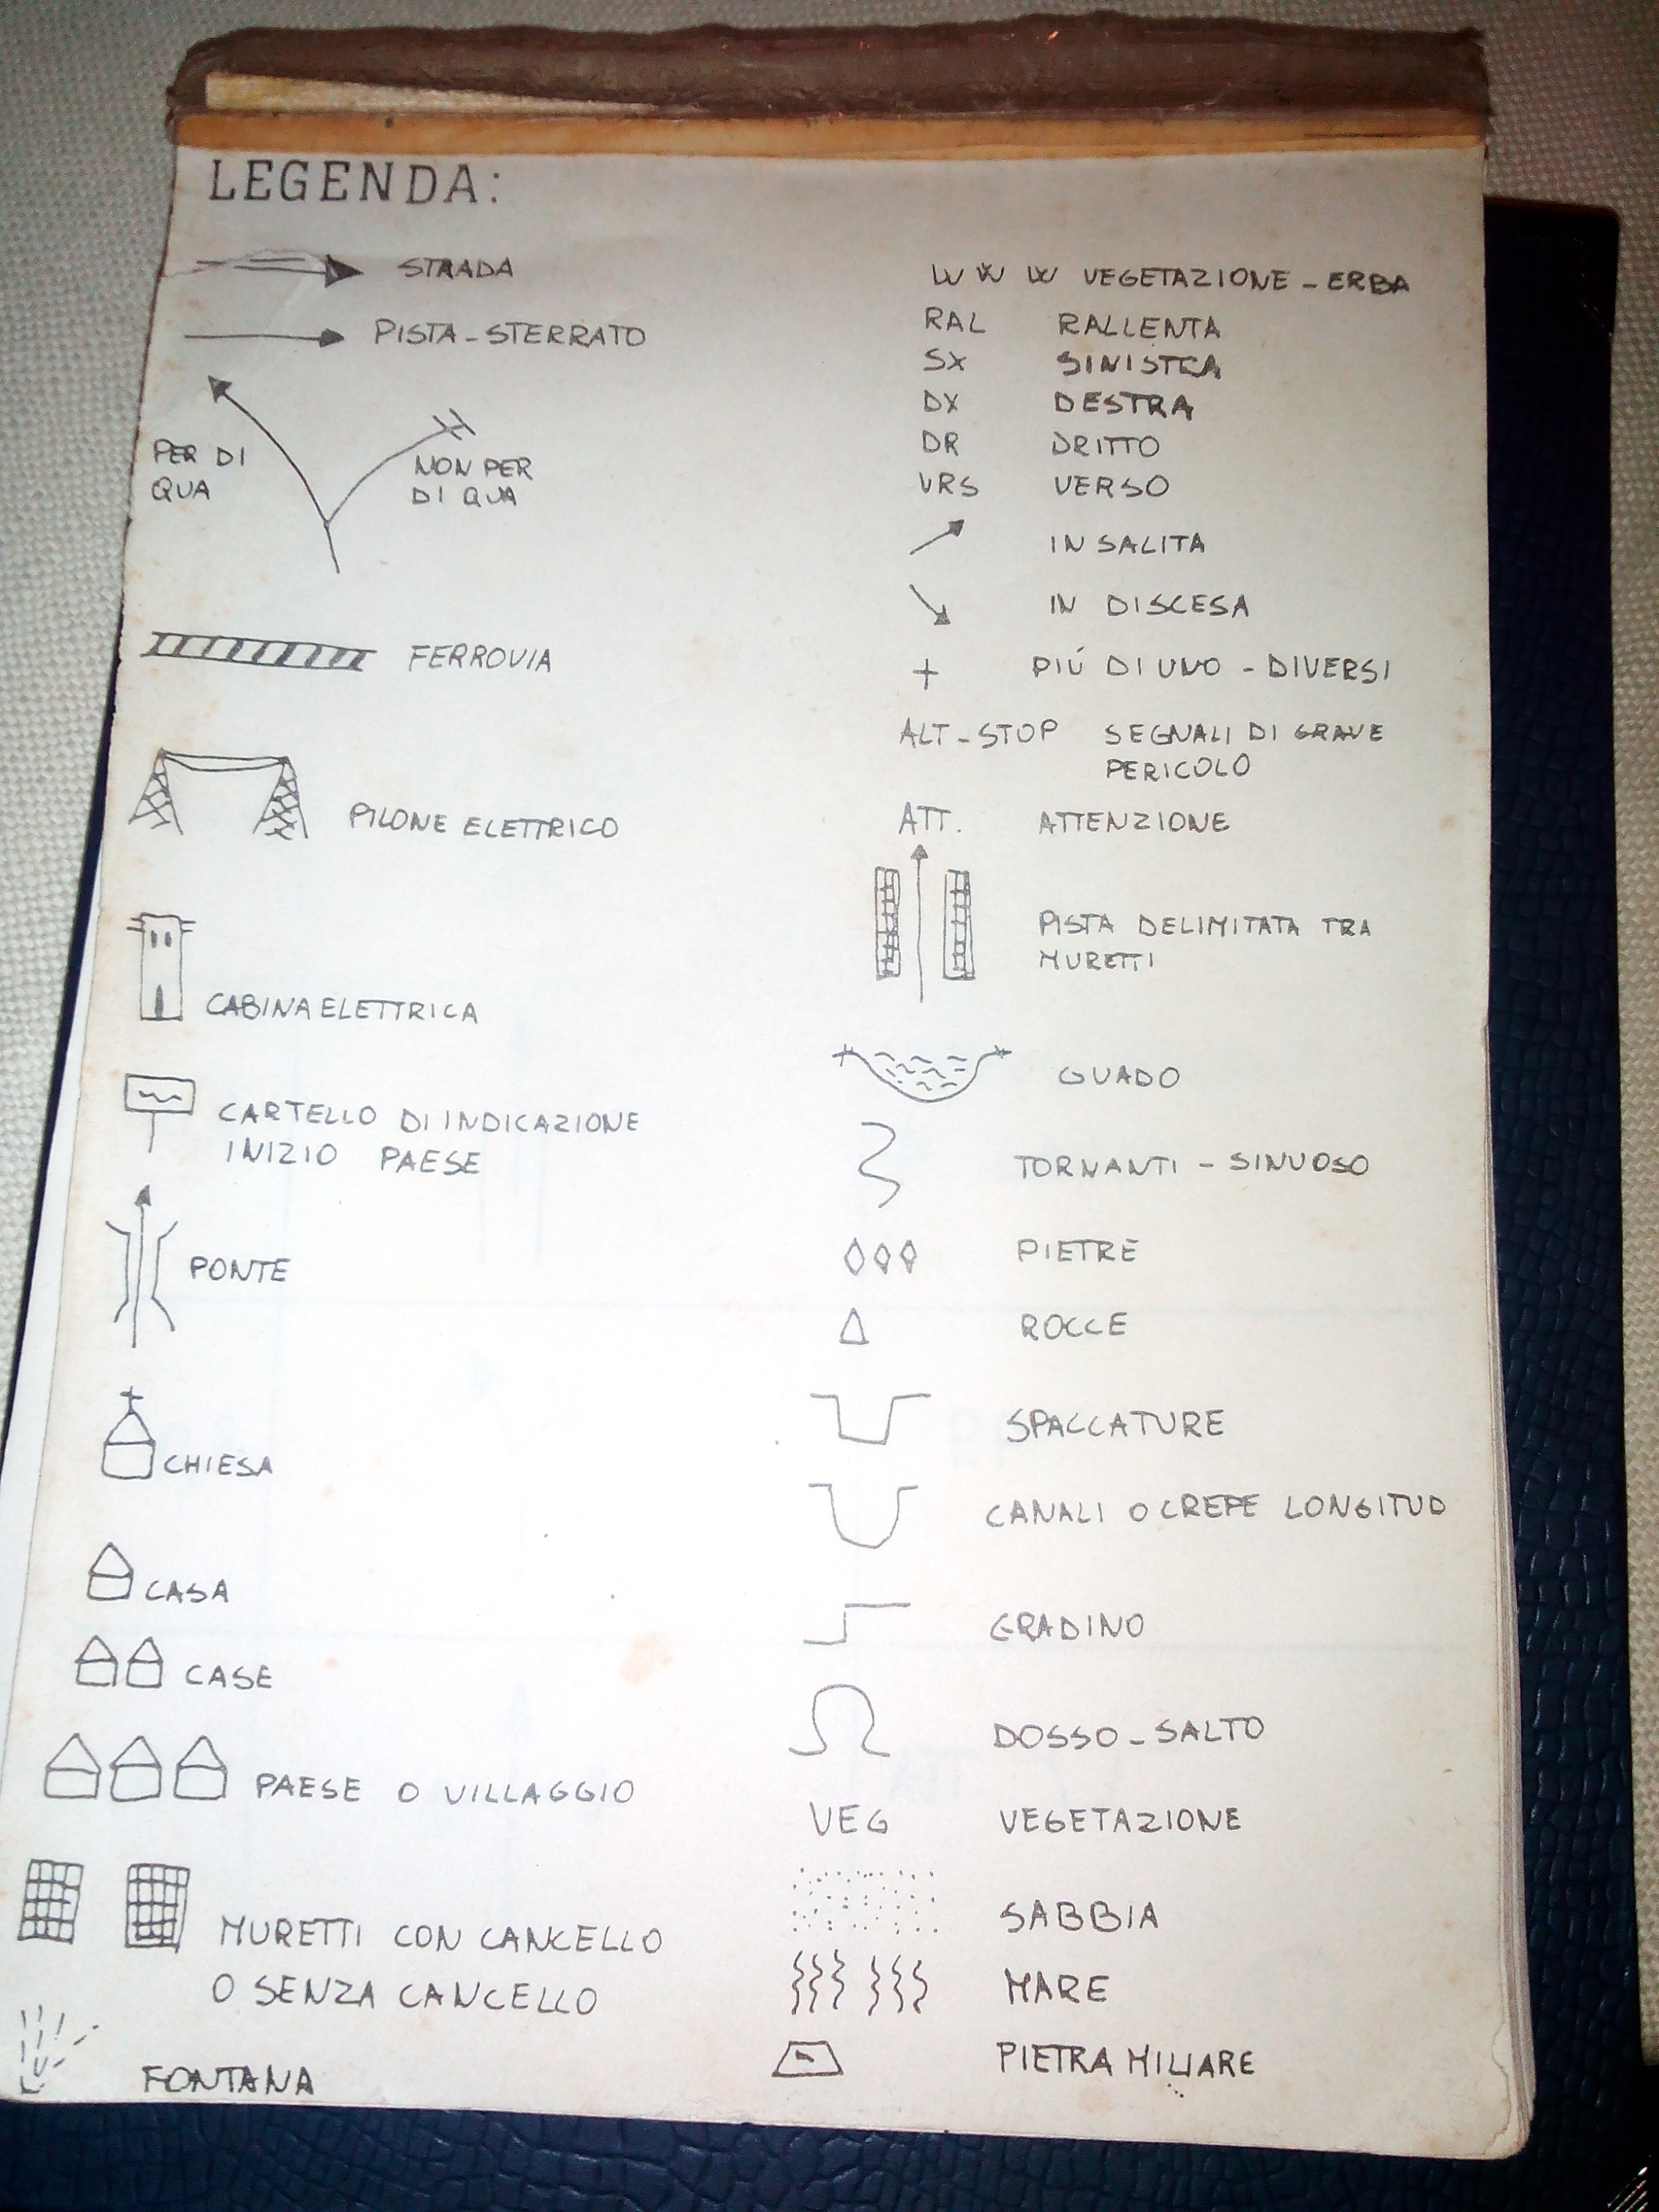 LEGENDA:
STRADA
PISTA-STERRATO
PER DI
QUA
NON PER
DI QUA
FERROVIA
PILONE ELETTRICO
CABINA ELETTRICA
CARTELLO DI INDICAZIONE
INIZIO PAESE
PONTE
CHIESA
CASA
CASE
PAESE O VILLAGGIO
MURETTI CON CANCELLO
O SENZA CANCELLO
FONTANA
VEGETAZIONE - ERBA
RAL RALLENTA
SX SINISTRA
DX DESTRA
DR DRITTO
VRS VERSO
IN SALITA
IN DISCESA
+ PIÚ DI UNO - DIVERSI
ALT-STOP SEGNALI DI GRAVE
PERICOLO
ATT. ATTENZIONE
PISTA DELIMITATA TRA
MURETTI
GUADO
TORNANTI - SINUOSO
PIETRE
ROCCE
SPACCATURE
CANALI O CREPE LONGITUD
GRADINO
DOSSO - SALTO
VEG VEGETAZIONE
SABBIA
MARE
PIETRA MILIARE